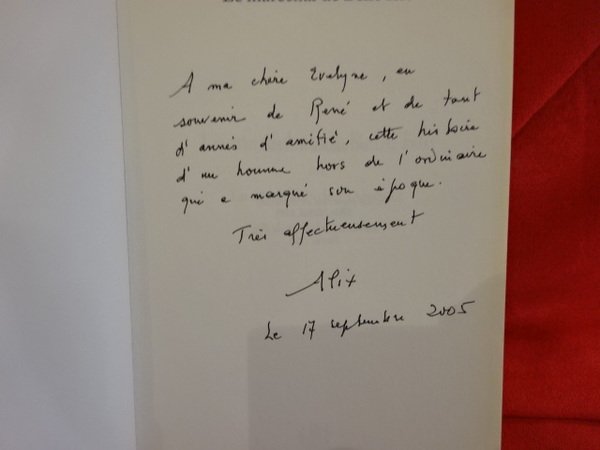 Le maréchal de Belle-Isle
A ma chère Evelyne, en
souvenir de René et de tant
d'annés d'amitié, cette histoire
d'un homme hors de l'ordinaire
qui a marqué son époque.
Très affectueusement
Alix
Le 17 septembre 2005